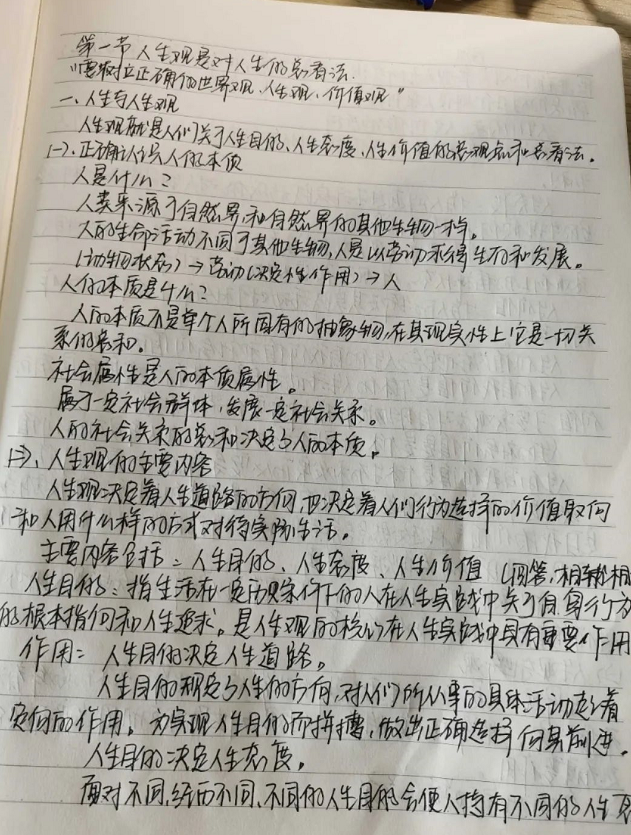 第一节人生观是对人生的总看法.
"要树立正确的世界观、人生观、价值观"
一、人生与人生观
人生观就是人们关于人生目的、人生态度、人生价值的总观点和总看法。
(一).正确认识人的本质
人是什么?
人类来源于自然界,和自然界的其他生物一样。
人的生命活动不同于其他生物,人是以劳动求得生存和发展。
(动物状态)→劳动(决定性作用)→人
人的本质是什么?
人的本质不是单个人所固有的抽象物,在其现实性上它是一切关
系的总和。
社会属性是人的本质属性。
属于一定社会群体,发展一定社会关系。
人的社会关系的总和决定了人的本质。
(二)、人生观的主要内容
人生观决定着人生道路的方向,也决定着人们行为选择的价值取向
和人用什么样的方式对待实际生活。
主要内容包括:人生目的、人生态度、人生价值(回答,相辅相
人生目的:指生活在一定历史条件下的人在人生实践中关于自身行为
的根本指向和人生追求。是人生观的核心在人生实践中具有重要作用
作用:人生目的决定人生道路。
人生目的规定了人生的方向,对人们所从事的具体活动起着
定向的作用。为实现人生目的而拼搏,做出正确选择向其前进。
人生目的决定人生态度。
面对不同,经历不同,不同的人生目的会使人持有不同的人生